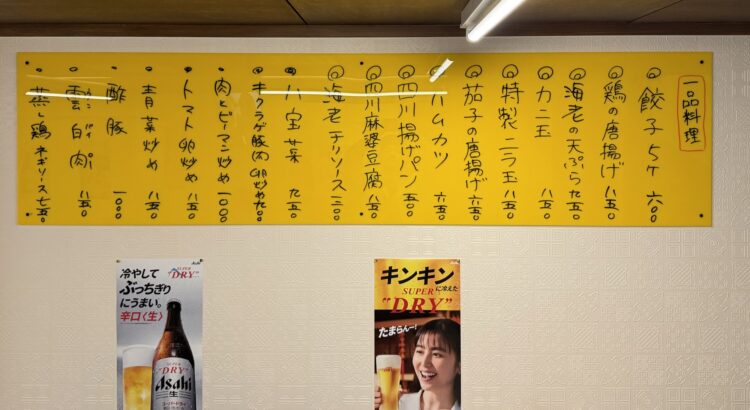 一品料理
◎餃子5ヶ 六〇〇
◎鶏の唐揚げ 八五〇
◎海老の天ぷら 九五〇
◎カニ玉 八五〇
◎特製ニラ玉 八五〇
◎茄子の唐揚げ 六五〇
◎ハムカツ 六五〇
◎四川揚げパン 五〇〇
◎四川麻婆豆腐 八五〇
◎海老チリソース 一三〇〇
・八宝菜 九五〇
・キクラゲ豚肉卵炒め 九〇〇
・肉とピーマン炒め 一〇〇〇
・トマト卵炒め 八五〇
・青菜炒め 八五〇
・酢豚 一〇〇〇
・雲白肉 八五〇
・蒸し鶏ネギソース 七五〇
冷やして
ぶっちぎり
にうまい。
辛口〈生〉
SUPER
"DRY"
"DRY"
Asahi
生
キンキン
に冷えた
SUPER
"DRY"
たまらんー!